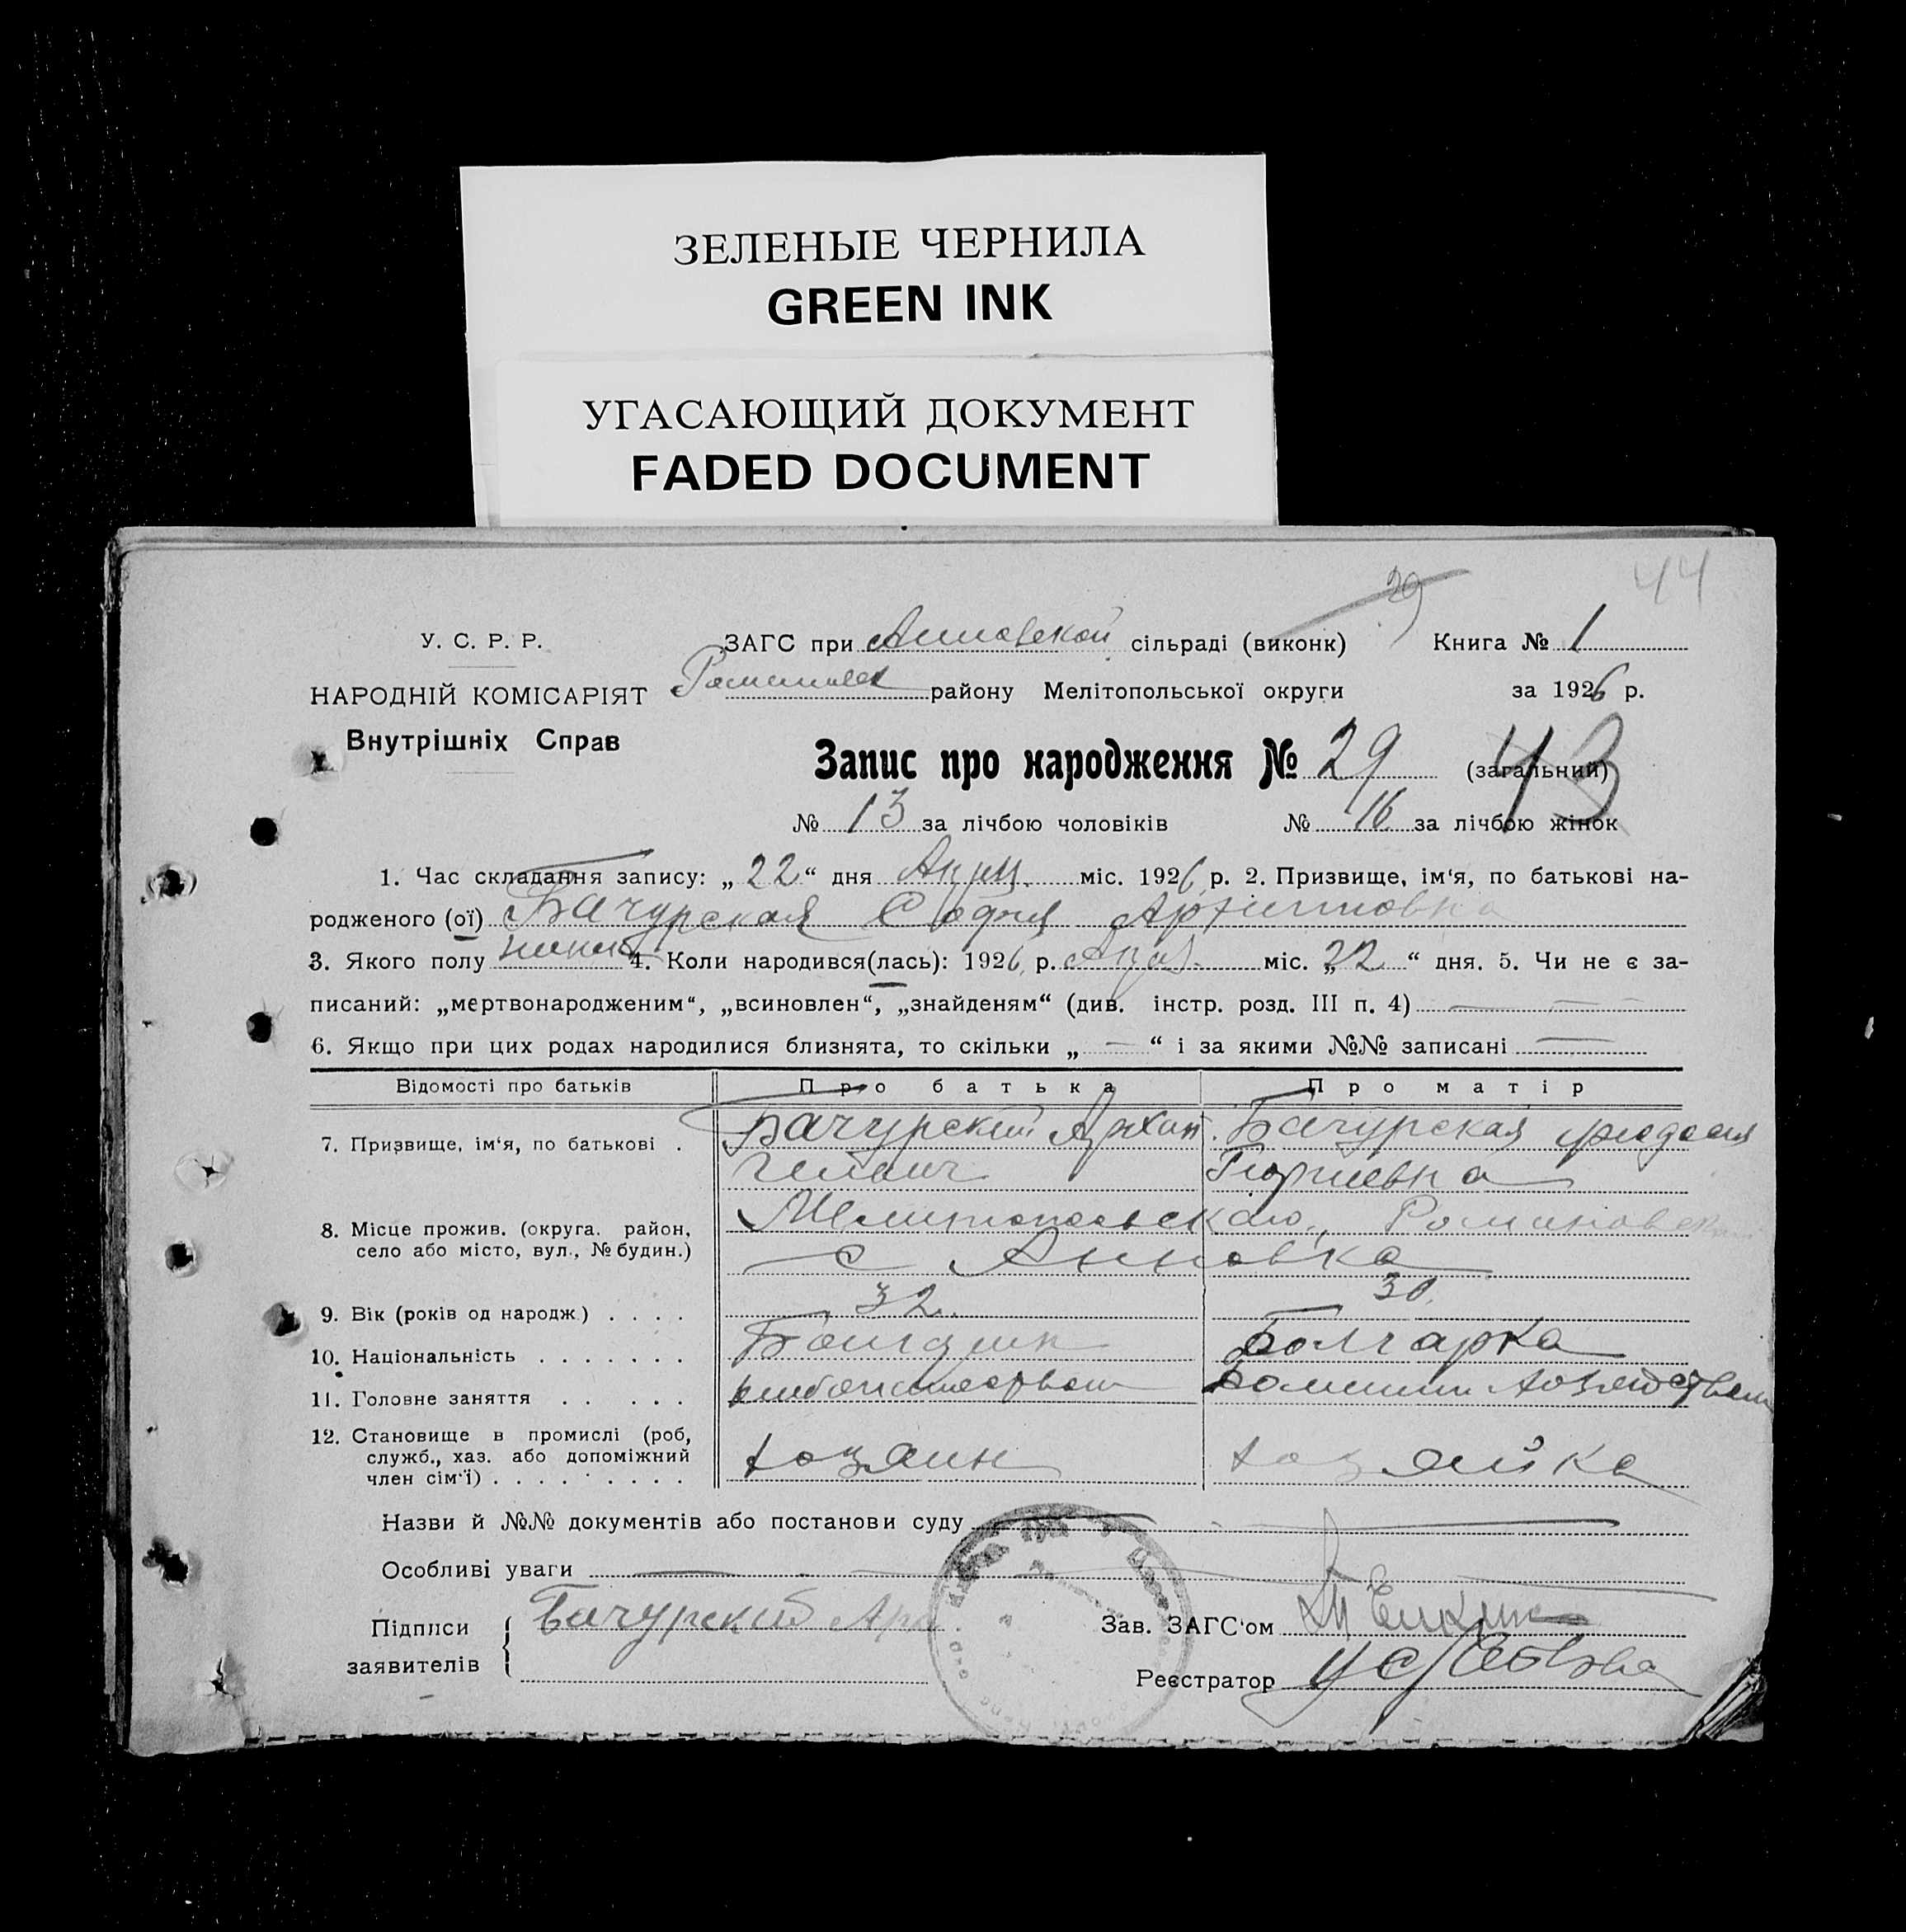 ЗЕЛЕНЫЕ ЧЕРНИЛА
GREEN INK
УГАСАЮЩИЙ ДОКУМЕНТ
FADED DOCUMENT
44
29
У. С. Р. Р. ЗАГС при Анновской сільраді (виконк) Книга № 1
НАРОДНІЙ КОМІСАРІЯТ району Мелітопольської округи за 1926 р.
Внутрішніх Справ
Запис про народження № 29 (загальний) 43
№ 13 за лічбою чоловіків № 16 за лічбою жінок
1. Час складання запису: „22“ дня міс. 1926 р. 2. Призвище, ім‘я, по батькові на-
родженого (ої) Бачурская София Архиповна
3. Якого полу 4. Коли народився(лась): 1926 р. міс. „22“ дня. 5. Чи не є за-
писаний: „мертвонародженим“, „всиновлен“, „знайденям“ (див. інстр. розд. III п. 4) —
6. Якщо при цих родах народилися близнята, то скільки „—“ і за якими №№ записані —
Відомості про батьків Про батька Про матір
7. Призвище, ім‘я, по батькові . Бачурский Архип Бачурская Феодосия
Георгиевна
8. Місце прожив. (округа. район, Мелитопольского, Романовск
село або місто, вул., № будин.) с Анновка
9. Вік (років од народж.) . . . . 32 30
10. Національність . . . . . . . Болгарка
11. Головне заняття . . . . . Домашн хозяйством
12. Становище в промислі (роб, хозяин хозяйка
служб., хаз. або допоміжний
член сім‘ї) . . . . . . . . .
Назви й №№ документів або постанови суду —
Особливі уваги —
Підписи Бачурский Арх Зав. ЗАГС‘ом
заявителів
Реєстратор